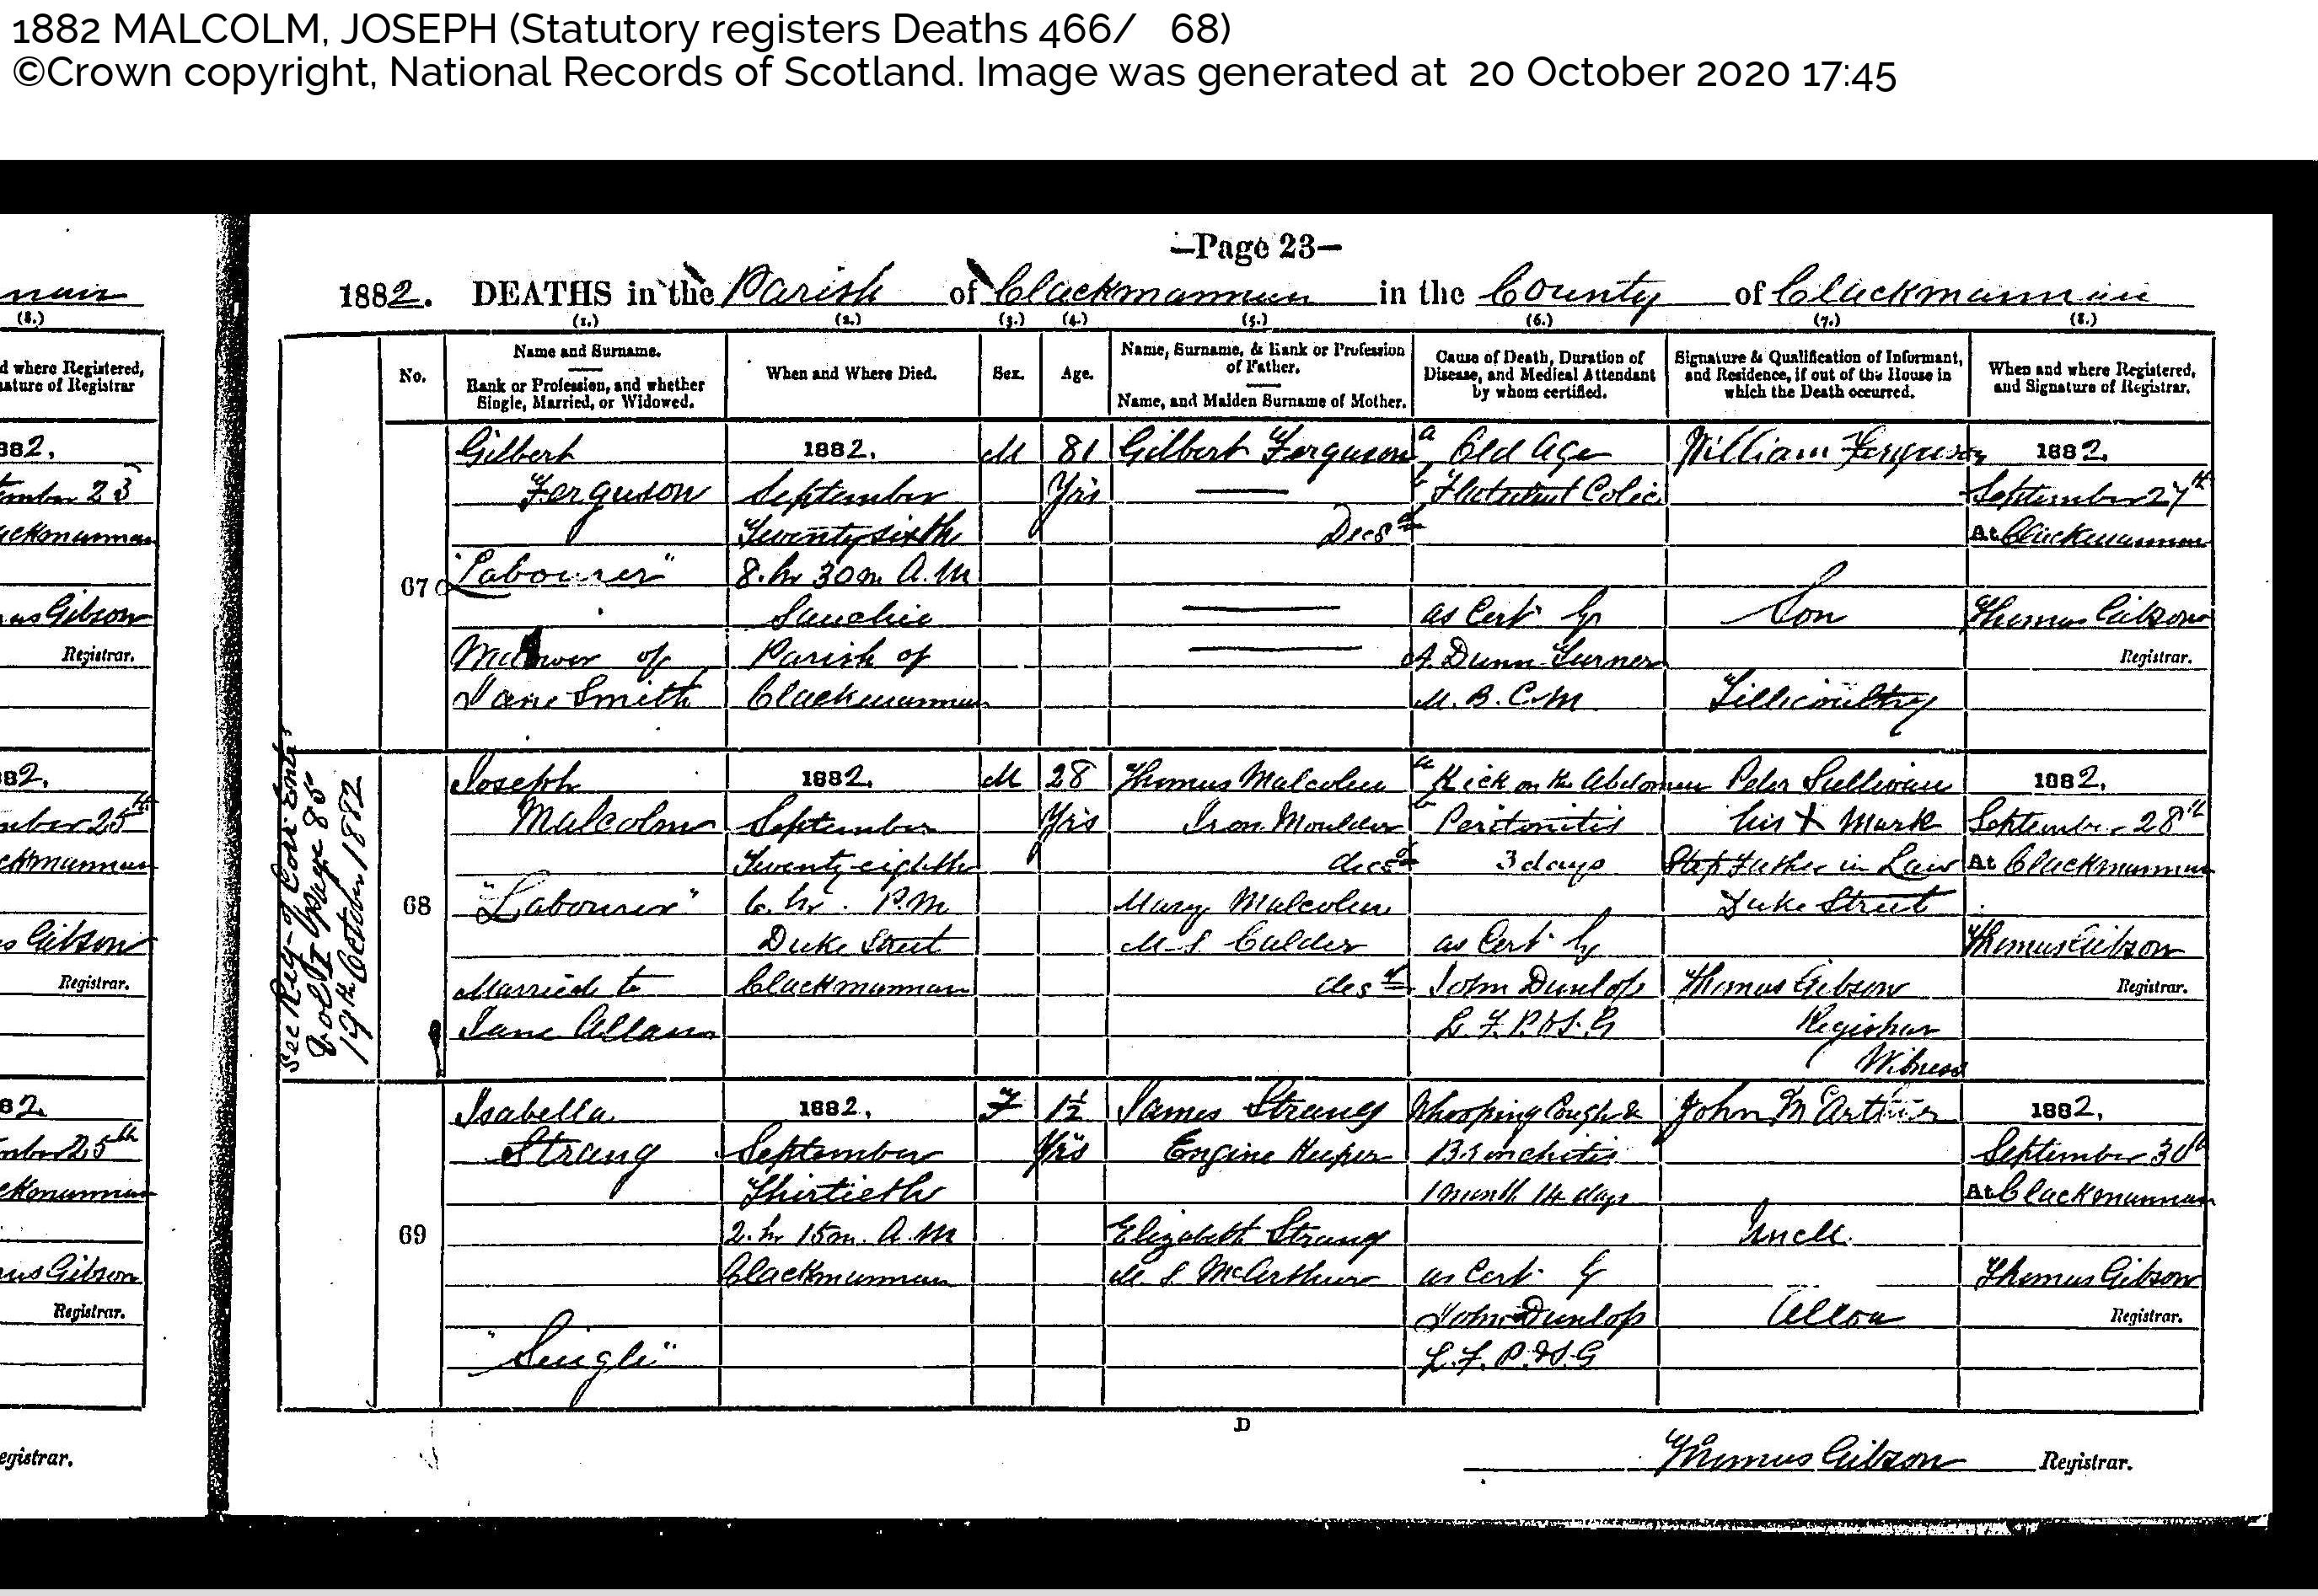 1882 MALCOLM, JOSEPH (Statutory registers Deaths 466/ 68)
©Crown copyright, National Records of Scotland. Image was generated at 20 October 2020 17:45
—Page 23—
1882. DEATHS in the Parish of Clackmannan in the County of Clackmannan
(1.) (2.) (3.) (4.) (5.) (6.) (7.) (8.)
No.
Name and Surname.
Rank or Profession, and whether
Single, Married, or Widowed.
When and Where Died.
Sex.
Age.
Name, Surname, & Rank or Profession
of Father.
Name, and Maiden Surname of Mother.
Cause of Death, Duration of
Disease, and Medical Attendant
by whom certified.
Signature & Qualification of Informant,
and Residence, if out of the House in
which the Death occurred.
When and where Registered,
and Signature of Registrar.
67
Gilbert
Ferguson
"Labourer"
Widower of
Jane Smith
1882.
September
Twenty sixth
8.hr 30m A.M
Sauchie
Parish of
Clackmannan
M
81
Yrs
Gilbert Ferguson
Decd
a Old Age
b Flatulent Colic
as Cert. by
A. Dunn Turner
M.B. C.M
William Ferguson
Son
Tillicoultry
1882.
September 27th
At Clackmannan
Thomas Gibson
Registrar.
See Reg. of Corr Ents
Vol I Page 85
19th October 1882
68
Joseph
Malcolm
"Labourer"
Married to
Jane Allan
1882.
September
Twenty-eighth
6. hr. P.M
Duke Street
Clackmannan
M
28
Yrs
Thomas Malcolm
Iron Moulder
decd
Mary Malcolm
M.S Calder
decd
a Kick on the Abdomen
b Peritonitis
3 days
as Cert. by
John Dunlop
L.F.P.&S.G
Peter Sullivan
his X Mark
Step Father in Law
Duke Street
Thomas Gibson
Registrar
Witness
1882.
September 28th
At Clackmannan
Thomas Gibson
Registrar.
69
Isabella
Strang
"Single"
1882.
September
Thirtieth
2.hr 15m. A.M
Clackmannan
F
1½
Yrs
James Strang
Engine Keeper
Elizabeth Strang
M.S McArthur
Whooping Cough &
Bronchitis
1 month 14 days
as Cert. by
John Dunlop
L.F.P.&S.G
John McArthur
Uncle
Alloa
1882.
September 30th
At Clackmannan
Thomas Gibson
Registrar.
D
Thomas Gibson Registrar.